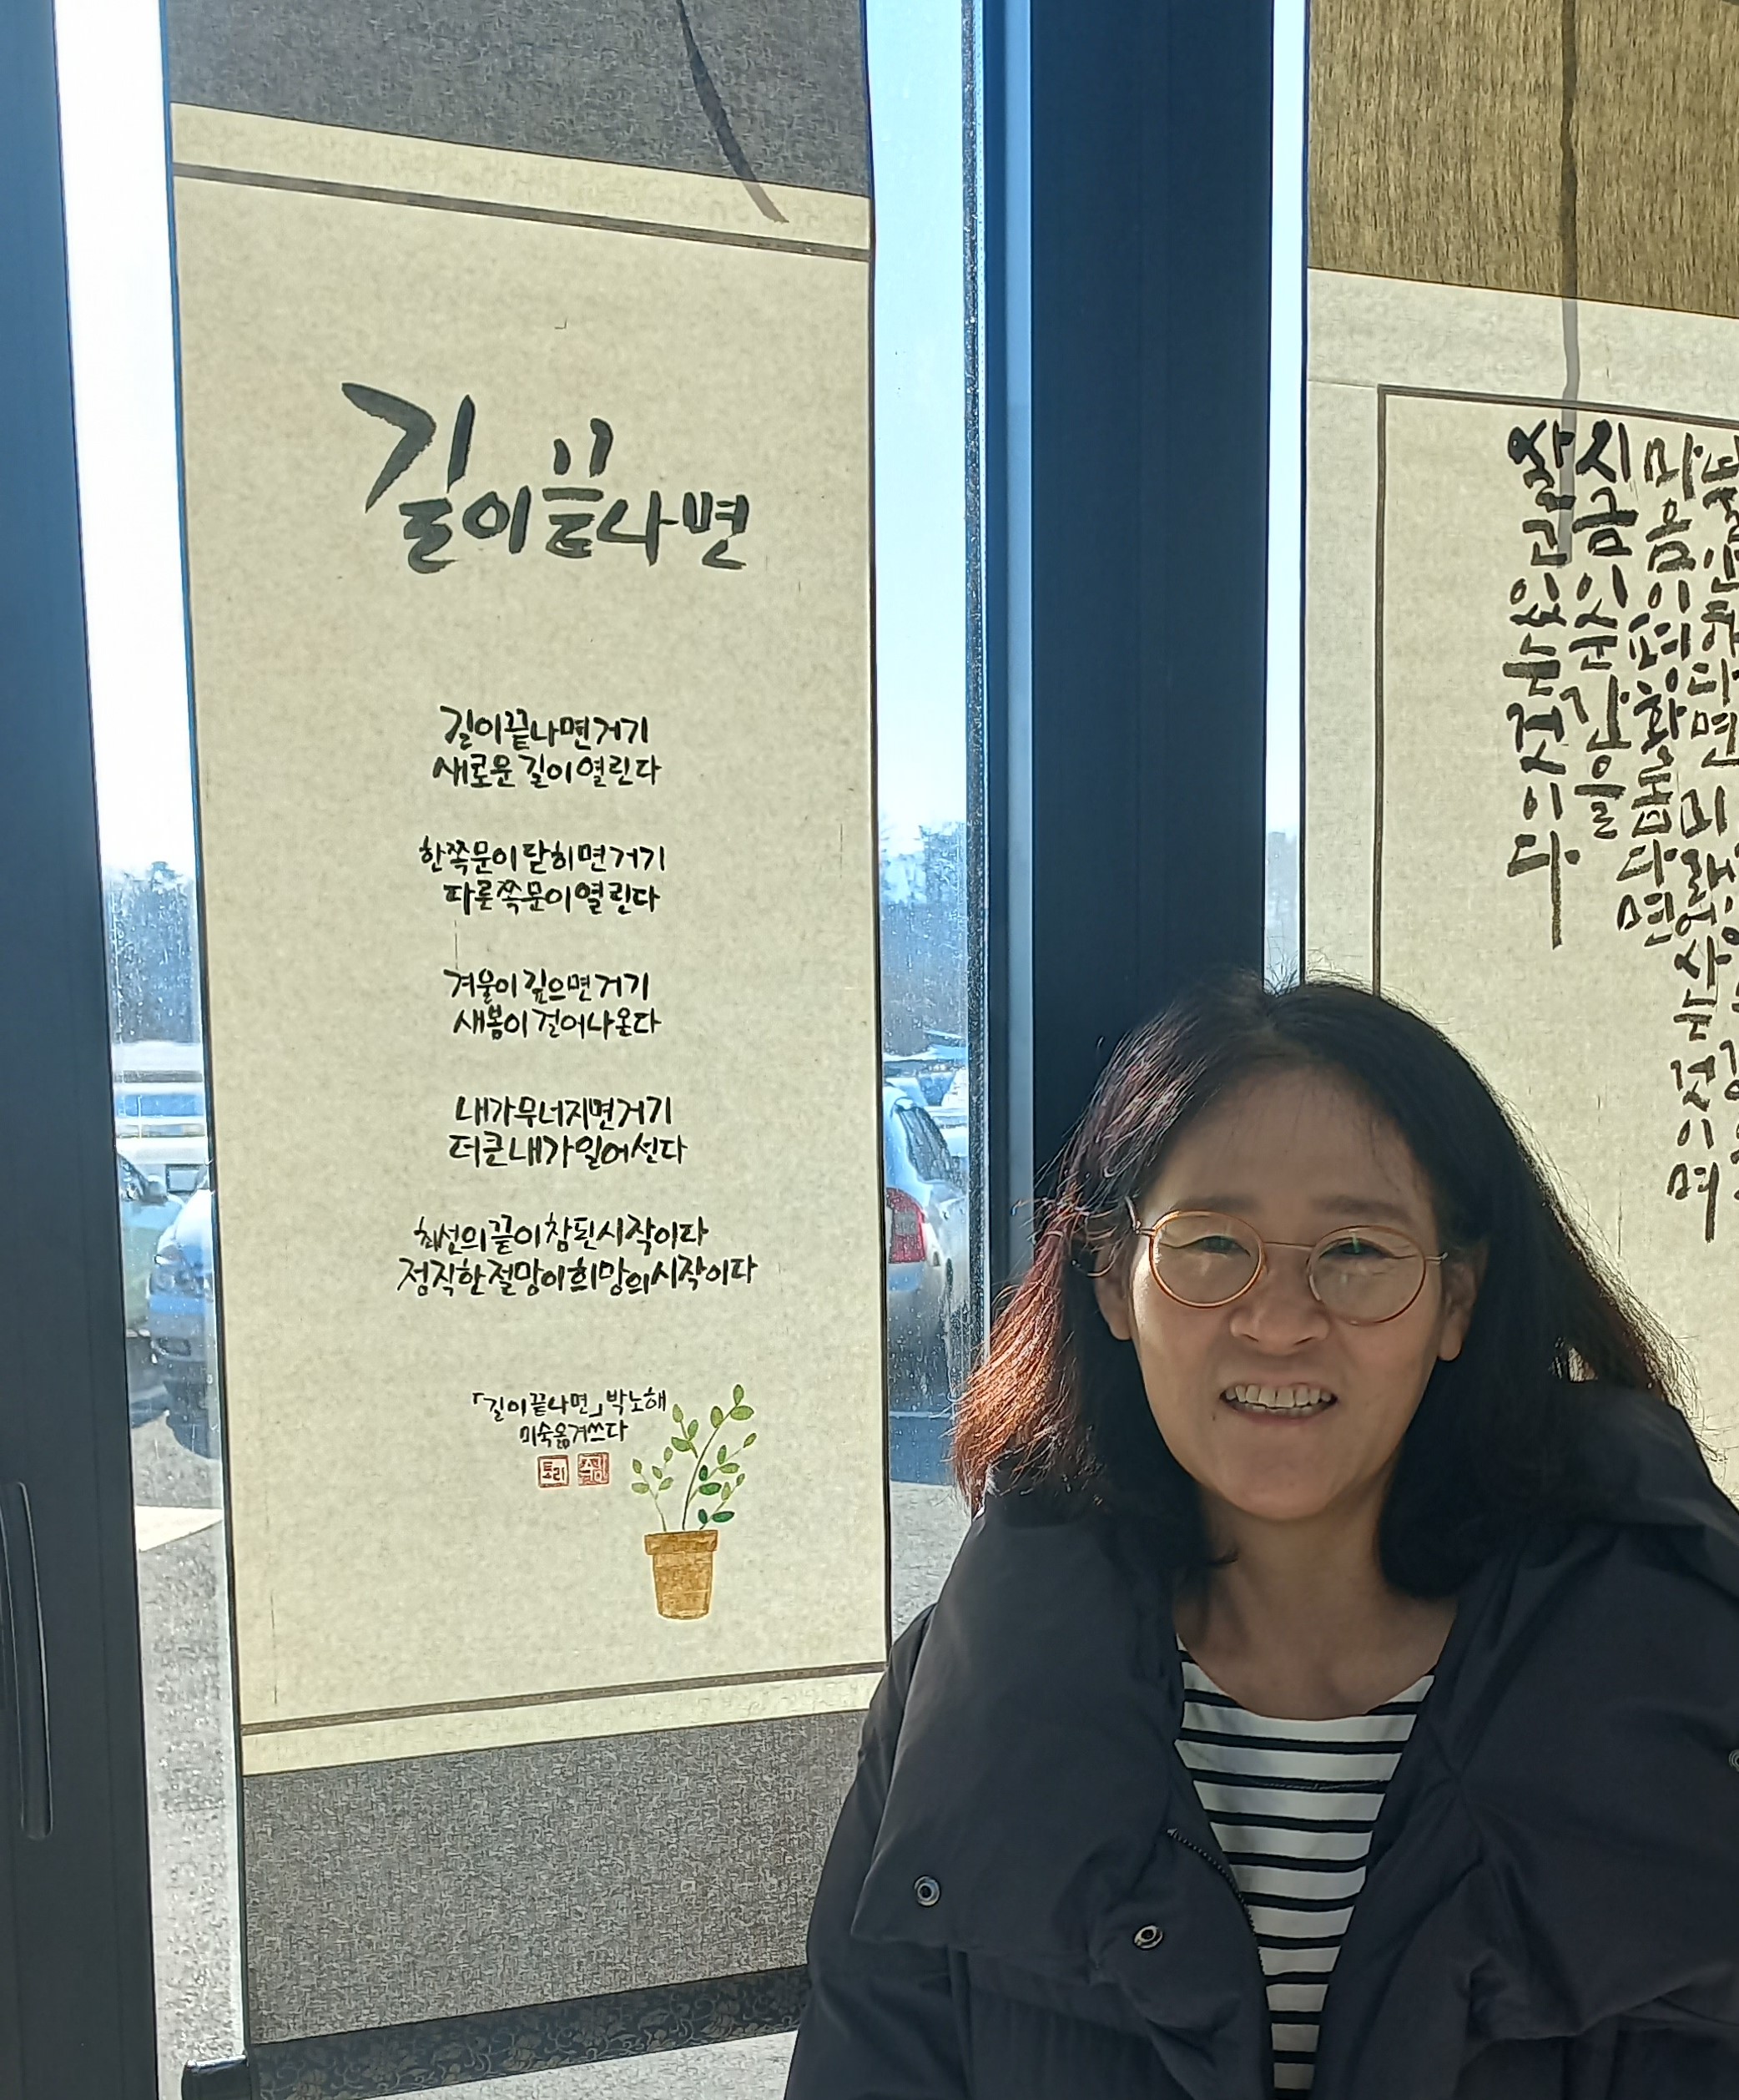 길이 끝나면
길이 끝나면 거기
새로운 길이 열린다
한쪽 문이 닫히면 거기
다른 쪽 문이 열린다
겨울이 깊으면 거기
새봄이 걸어나온다
내가 무너지면 거기
더 큰 내가 일어선다
최선의 끝이 참된 시작이다
정직한 절망이 희망의 시작이다
「길이 끝나면」 박노해
미숙 옮겨쓰다
토리
불안하다면 미래에 사는 것이며
마음이 평화롭다면
지금 이 순간을
살고 있는 것이다